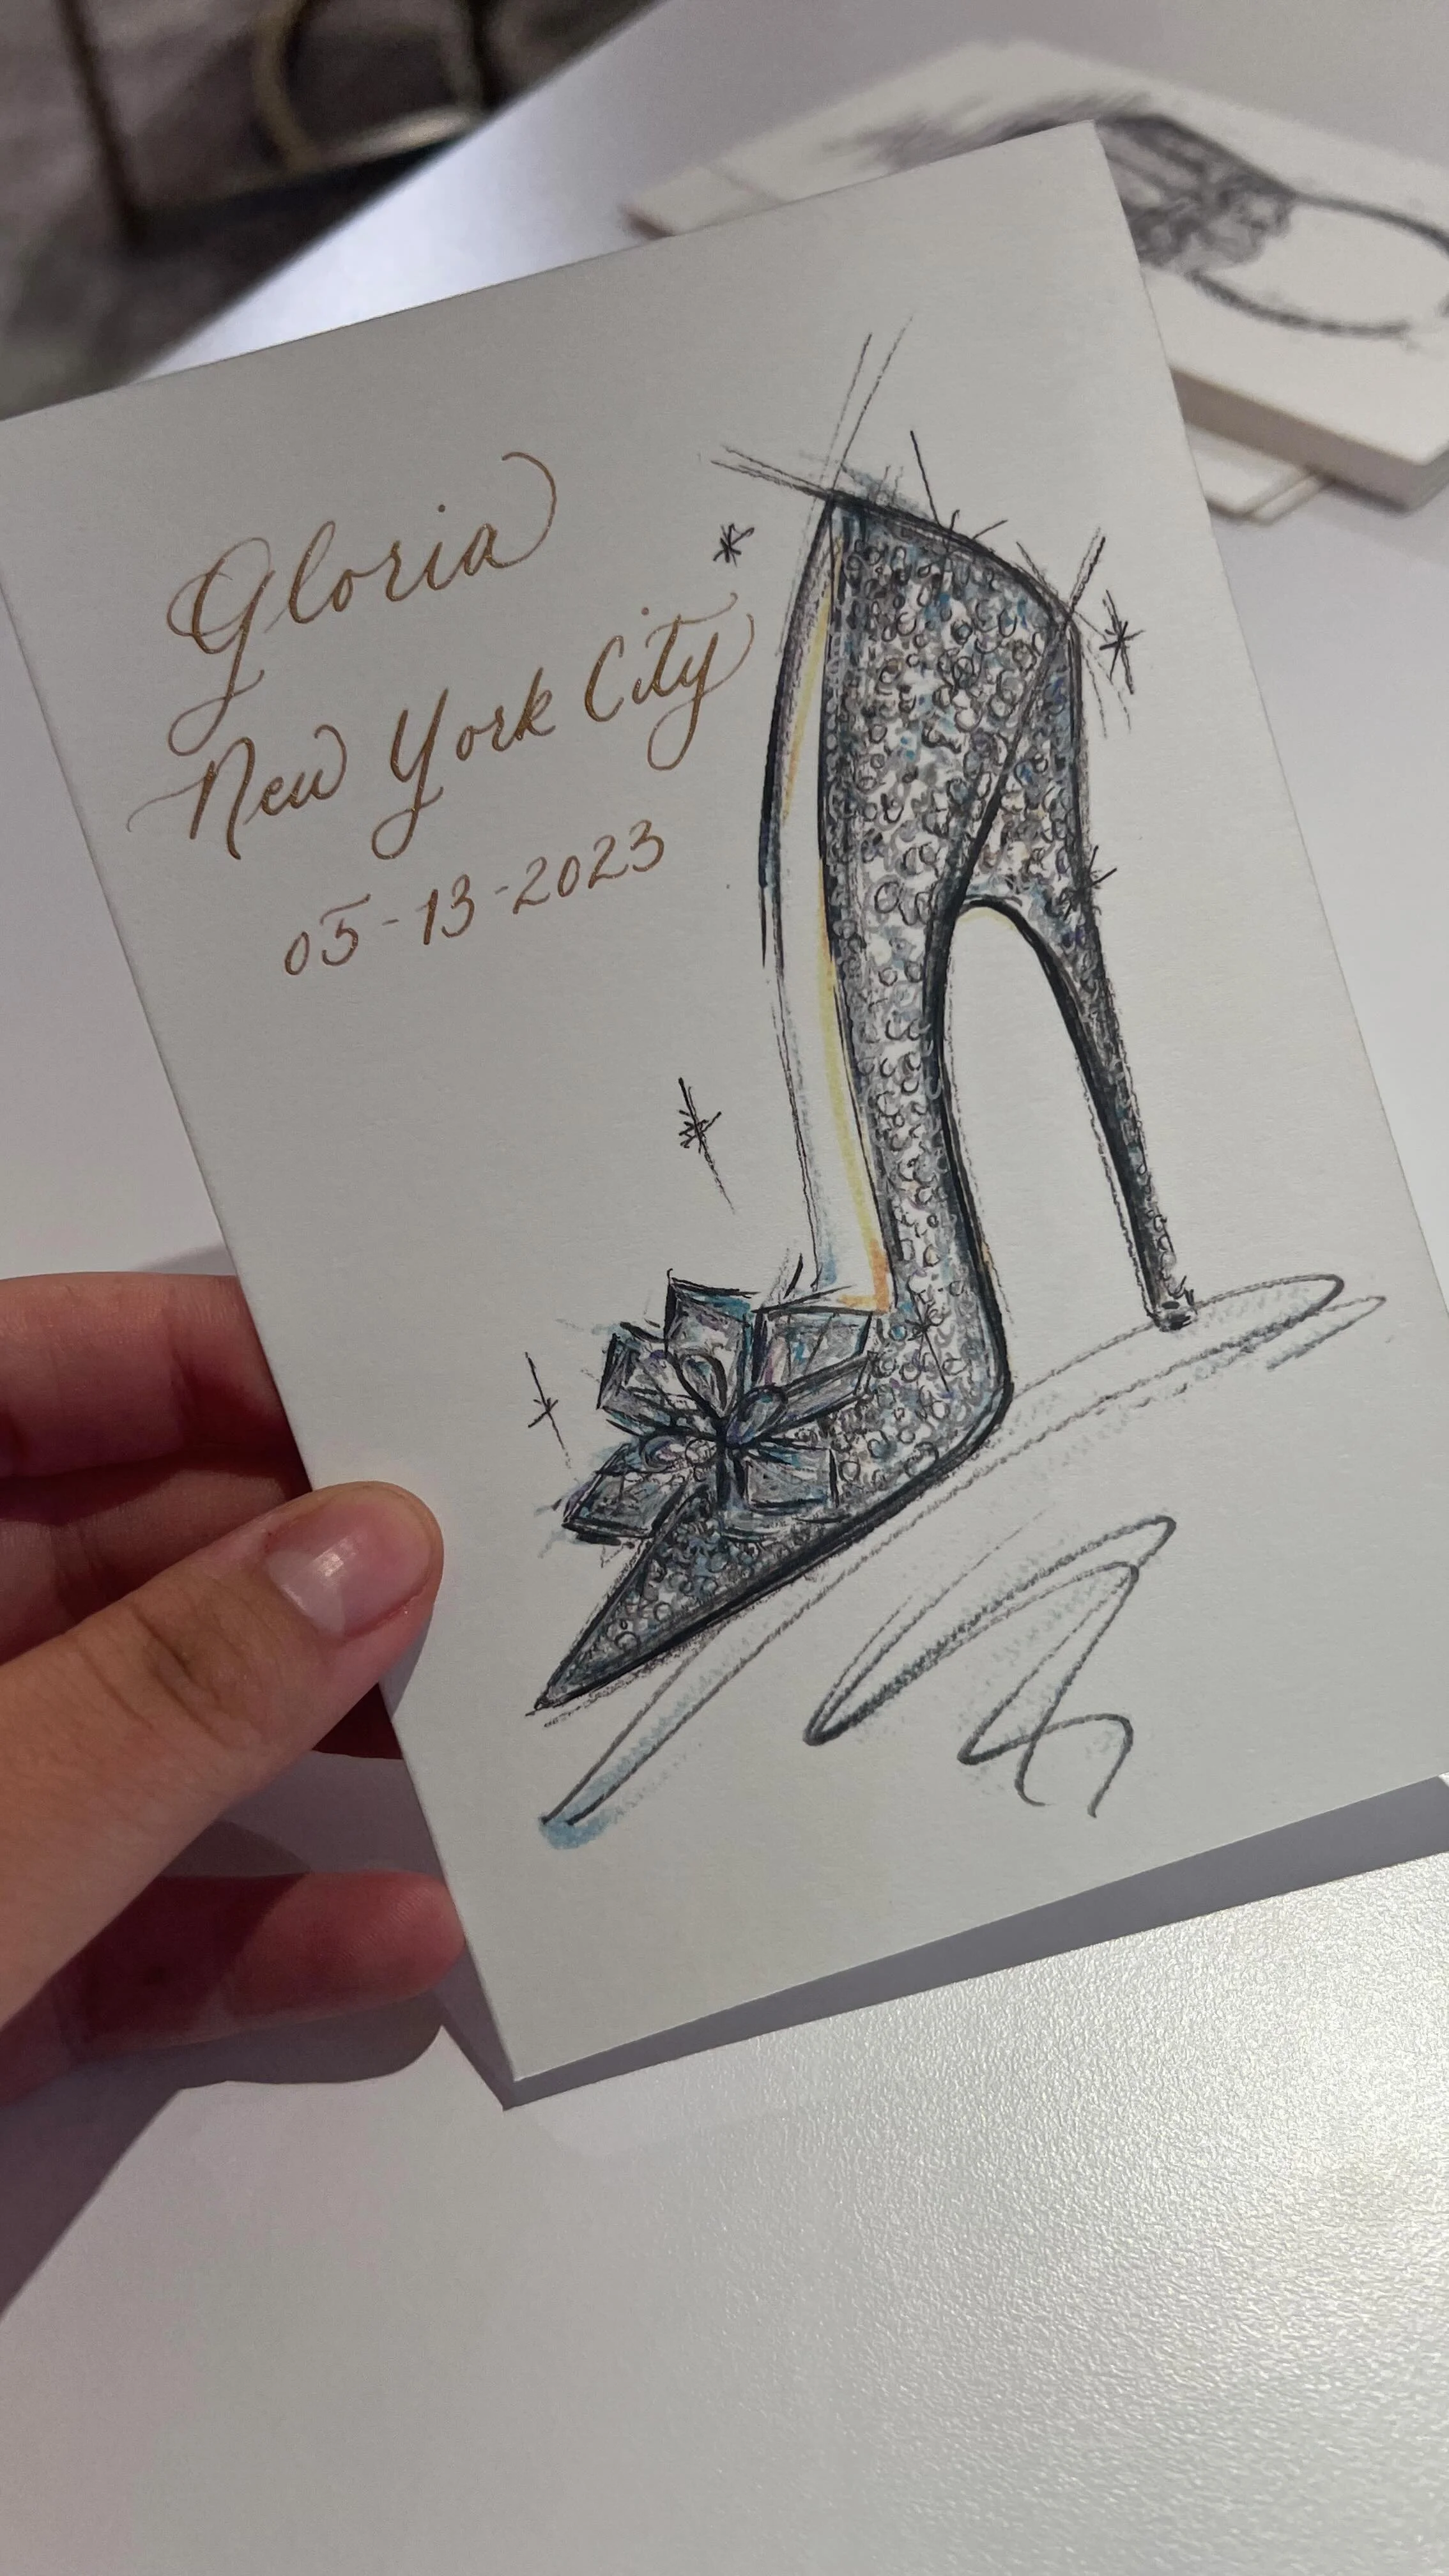 Gloria
New York City
05-13-2023